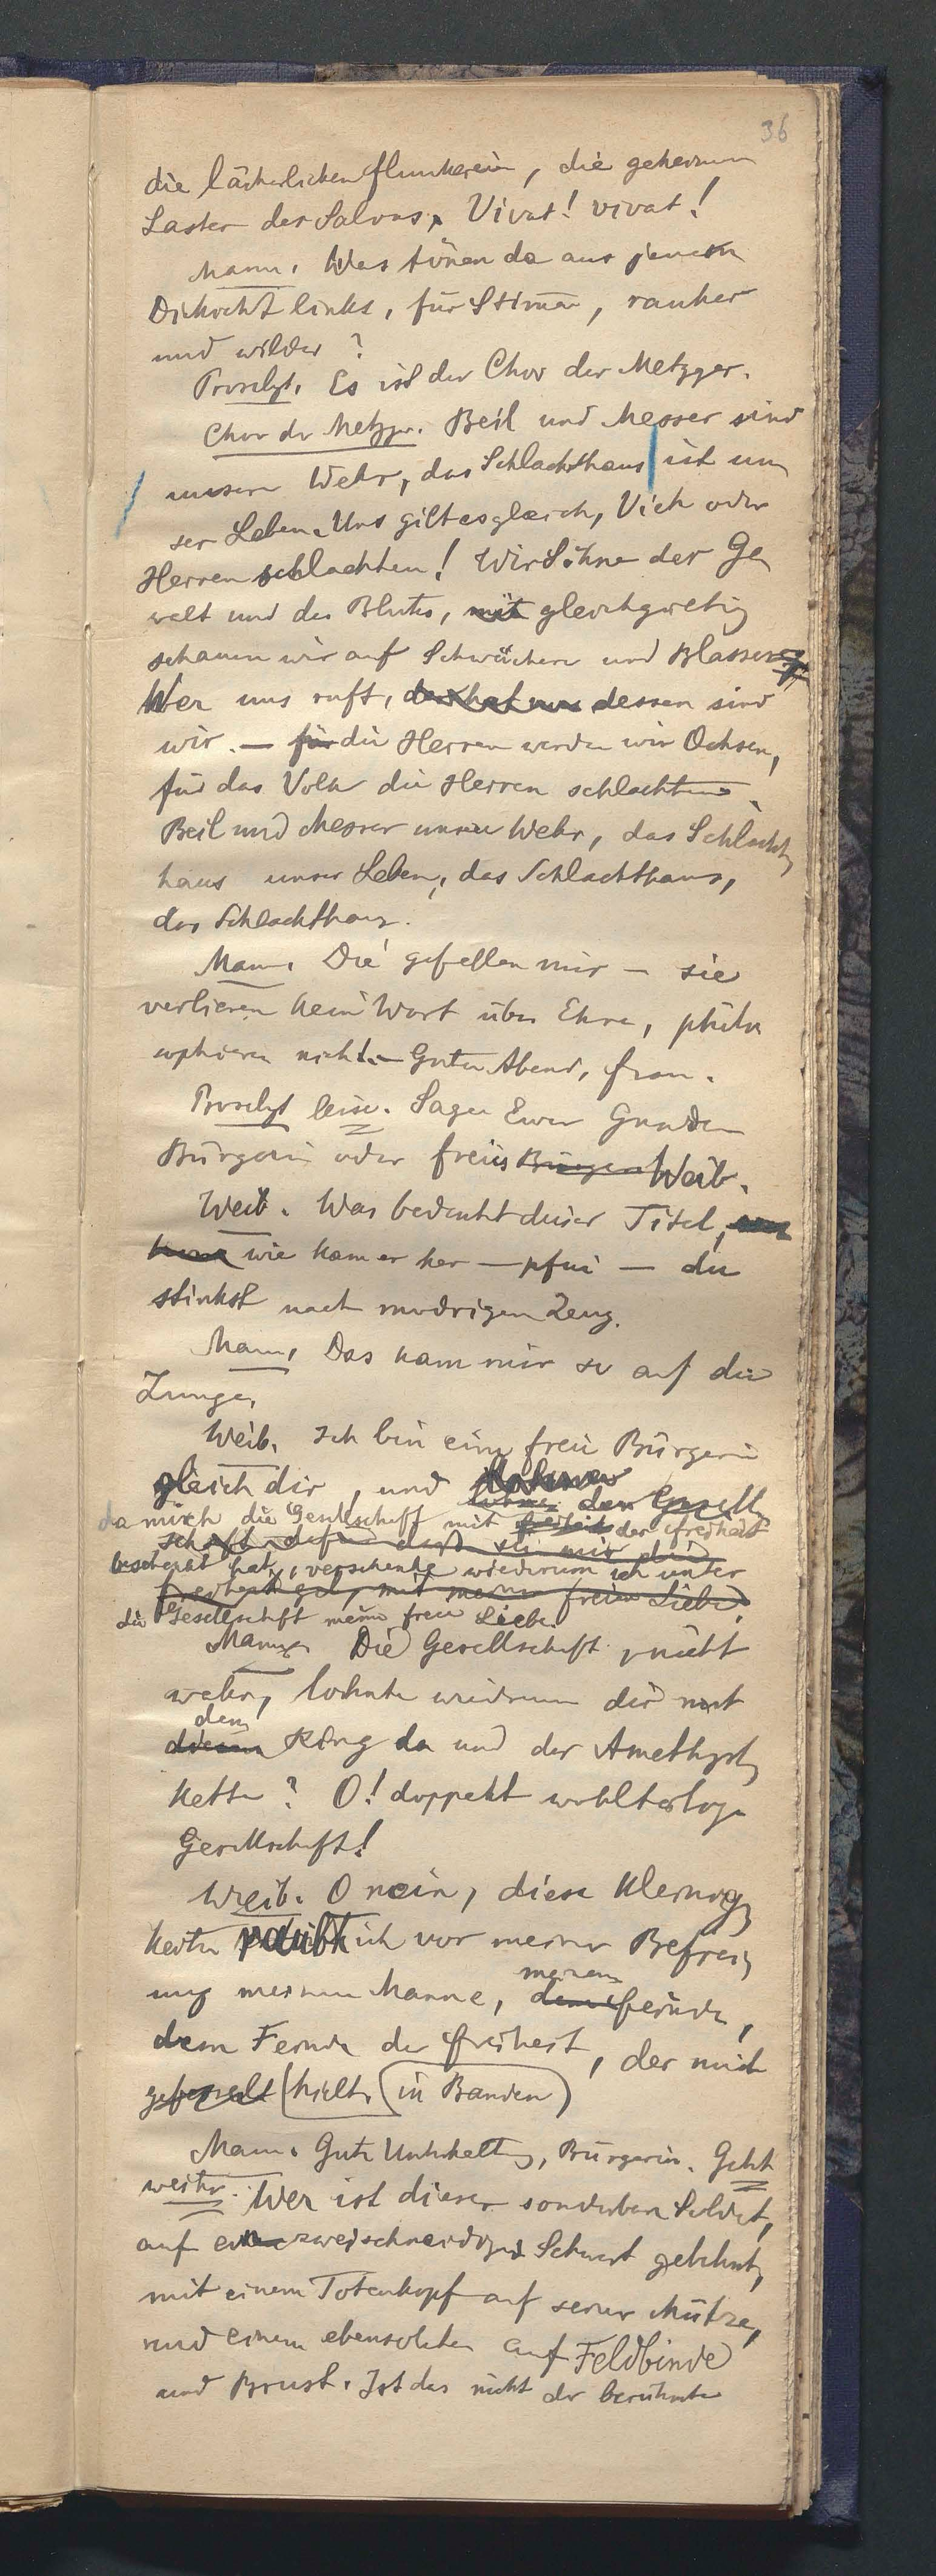 36
die lächerlichen Flunkerein, die geheimen
Laster der Salons, Vivat! vivat!
Mann. Was tönen da aus jenem
Dickicht links, für Stimen, rauher
und wilder?
Proselyt. Es ist der Chor der Metzger.
Chor der Metzger. Beil und Messer sind
unsere Wehr, das Schlachthaus ist un
ser Leben. Uns gilt es gleich, Vieh oder
Herren schlachten! Wir Söhne der Ge
walt und des Blutes, mit gleichgültig
schauen wir auf Schwächere und Blassere
Wer uns ruft, der hat uns dessen sind
wir. — für die Herren werden wir Ochsen,
für das Volk die Herren schlachten.
Beil und Messer unsre Wehr, das Schlacht
haus unser Leben, das Schlachthaus,
das Schlachthaus.
Mann. Die gefallen mir — sie
verlieren kein Wort über Ehre, philo
sophieren nicht. — Guten Abend, Frau.
Proselyt leise. Sagen Euer Gnaden
Bürgerin oder freies Bürger Weib.
Weib. Was bedeutet dieser Titel,
wie kam er her — pfui — du
stinkst nach modrigem Zeug.
Mann. Das kam mir so auf die
Zunge.
Weib. Ich bin eine freie Bürgerin
gleich dir, und
den Gesell
da mich die Gesellschaft mit Freiheit der Freiheit
schaft dafür dass sie mir die
beschenkt hat, verschenke wiederum ich unter
Freiheit gab, mit meiner freien Liebe.
die Gesellschaft meine freie Liebe.
Mann. Die Gesellschaft, nicht
wahr, lohnte wiedrum dir mit
den
diesem Ring da und der Amethyst
kette? O! doppelt wohltätige
Gesellschaft!
Weib. O nein, diese Kleinig
keiten raubte ich vor meiner Befrei
ung meinem Manne, meinem
dem Feinde,
dem Feinde der Freiheit, der mich
gefesselt hielt. in Banden
Mann. Gute Unterhaltung, Bürgerin. Geht
weiter. Wer ist dieser sonderbare Soldat,
auf ein zweischneidiges Schwert gelehnt,
mit einem Totenkopf auf seiner Mütze,
und einem ebensolchen auf Feldbinde
und Brust. Ist das nicht der berühmte